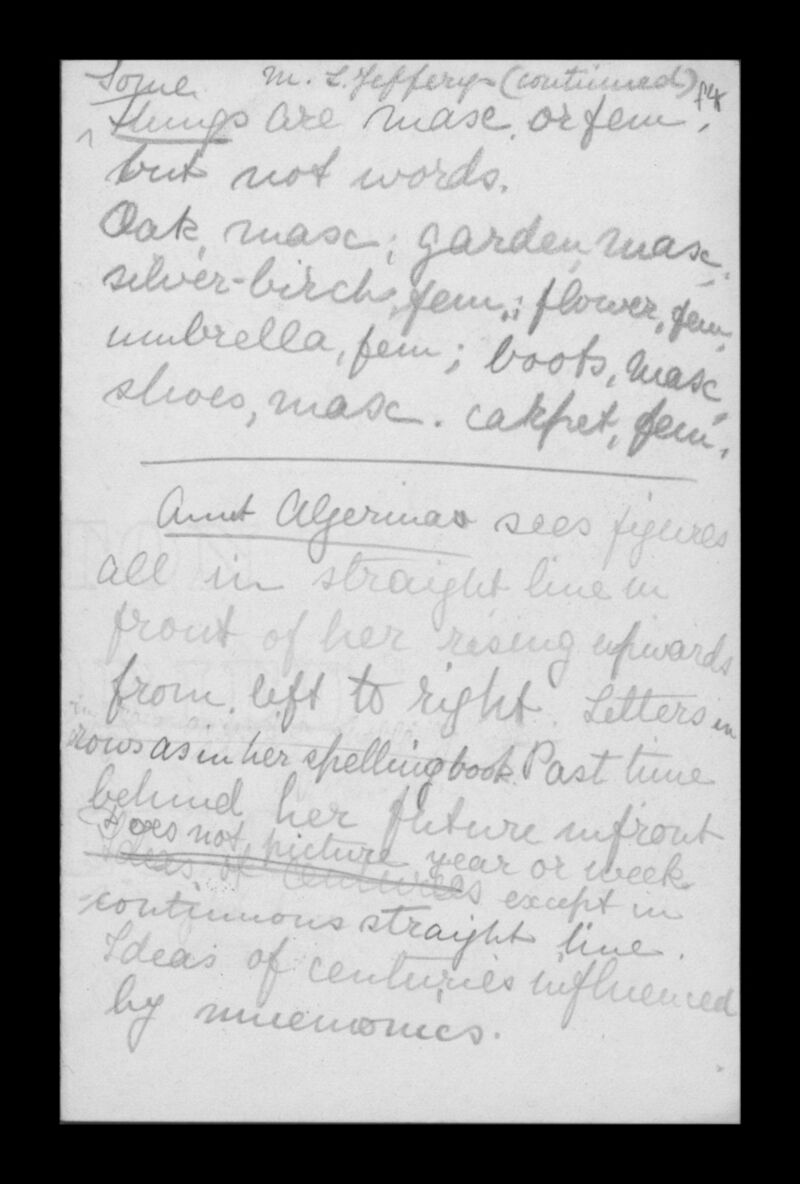 M. L. Jeffery (continued) f4
Some
^ things are masc. or fem.,
but not words.
Oak, masc; garden, masc.
silver-birch, fem,; flower, fem,
umbrella, fem; boots, masc,
shoes, masc. carpet, fem,.
Aunt sees figures
all in straight line in
front of her rising upwards
from left to right. Letters in
rows as in her spelling book. Past time
behind her future in front
Does not, picture year or week
Ideas of centuries except in
continuous straight line.
Ideas of centuries influenced
by mnemonics.